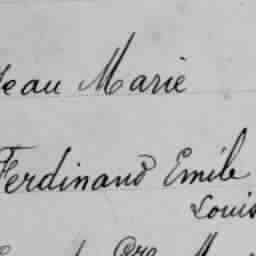 Jean Marie
Ferdinand Emile
Louis